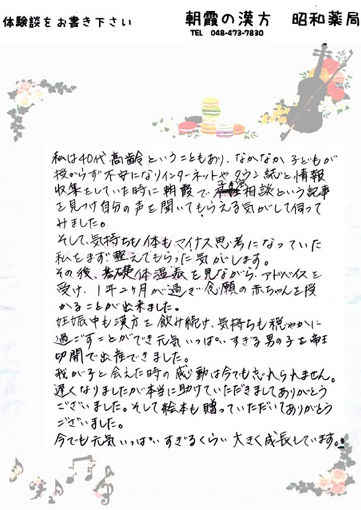 体験談をお書き下さい
朝霞の漢方 昭和薬局
TEL 048-473-7830
私は40代高齢ということもあり、なかなか子どもが
授からず不安になりインターネットやタウン誌と情報
収集をしていた時に朝霞で相談という記事
を見つけ自分の声を聞いてもらえる気がして伺って
みました。
そして、気持ちも体もマイナス思考になっていた
私をまず整えてもらった気がします。
その後、基礎体温表を見ながら、アドバイスを
受け、1年2ヶ月が過ぎ念願の赤ちゃんを授
かることが出来ました。
妊娠中も漢方を飲み続け、気持ちも穏やかに
過ごすことができ元気いっぱいすぎる男の子を帝王
切開で出産できました。
我が子と会えた時の感動は今でも忘れられません。
遅くなりましたが本当に助けていただきましてありがとう
ございました。そして絵本も贈っていただいてありがとう
ございました。
今でも元気いっぱいすぎるくらい大きく成長しています。